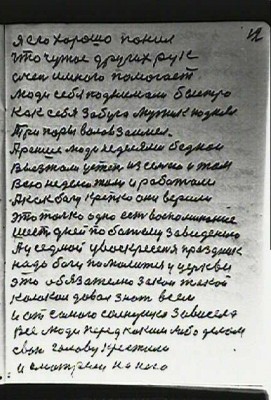 я его хорошо понял
что чужое других рук
очень много помогает
люди себя поднимали быстро
как себя забуга мужик поднял
три пары волов заимел.
Аранше люди неделями бедной
выезжали у степ из семьею там
всю неделю жили и работали
Акскбагу крепко они верили
это только одно есть воспоминание
шест дней по божему заведению
Ана седмой увоскресеня праздник
надо богу помолится у церкви
это обязателно закон такой
колокол давал знат всем
и от самого солнушка зависело
все люди перед каким либо делом
свою голову крестили
и смотрели на него